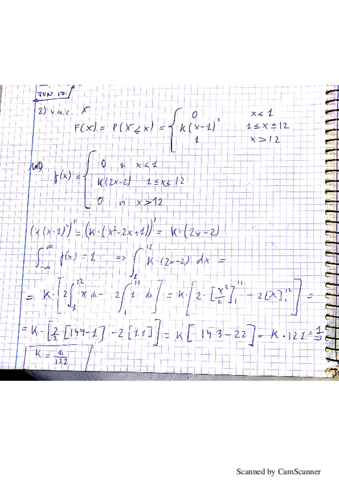 JUN 17
2) v.a.c. X
F(x) = P(X ≤ x) = { 0 x < 1
K(x-1)² 1 ≤ x ≤ 12
1 x > 12
a) f(x) = { 0 si x < 1
K(2x-2) 1 ≤ x ≤ 12
0 si x > 12
(K(x-1)²)' = (K·(x²-2x+1))' = K·(2x-2)
∫_{-∞}^{∞} f(x) = 1 ⇒ ∫_1^{12} K·(2x-2) dx =
= K·[2∫_1^{12} x dx - 2∫_1^{12} 1 dx] = K[2·[x²/2]_1^{12} - 2[x]_1^{12}] =
= K·[2/2 [144-1] - 2[11]] = K[143-22] = K·121 = 1 ⇒
K = 1/121
Scanned by CamScanner